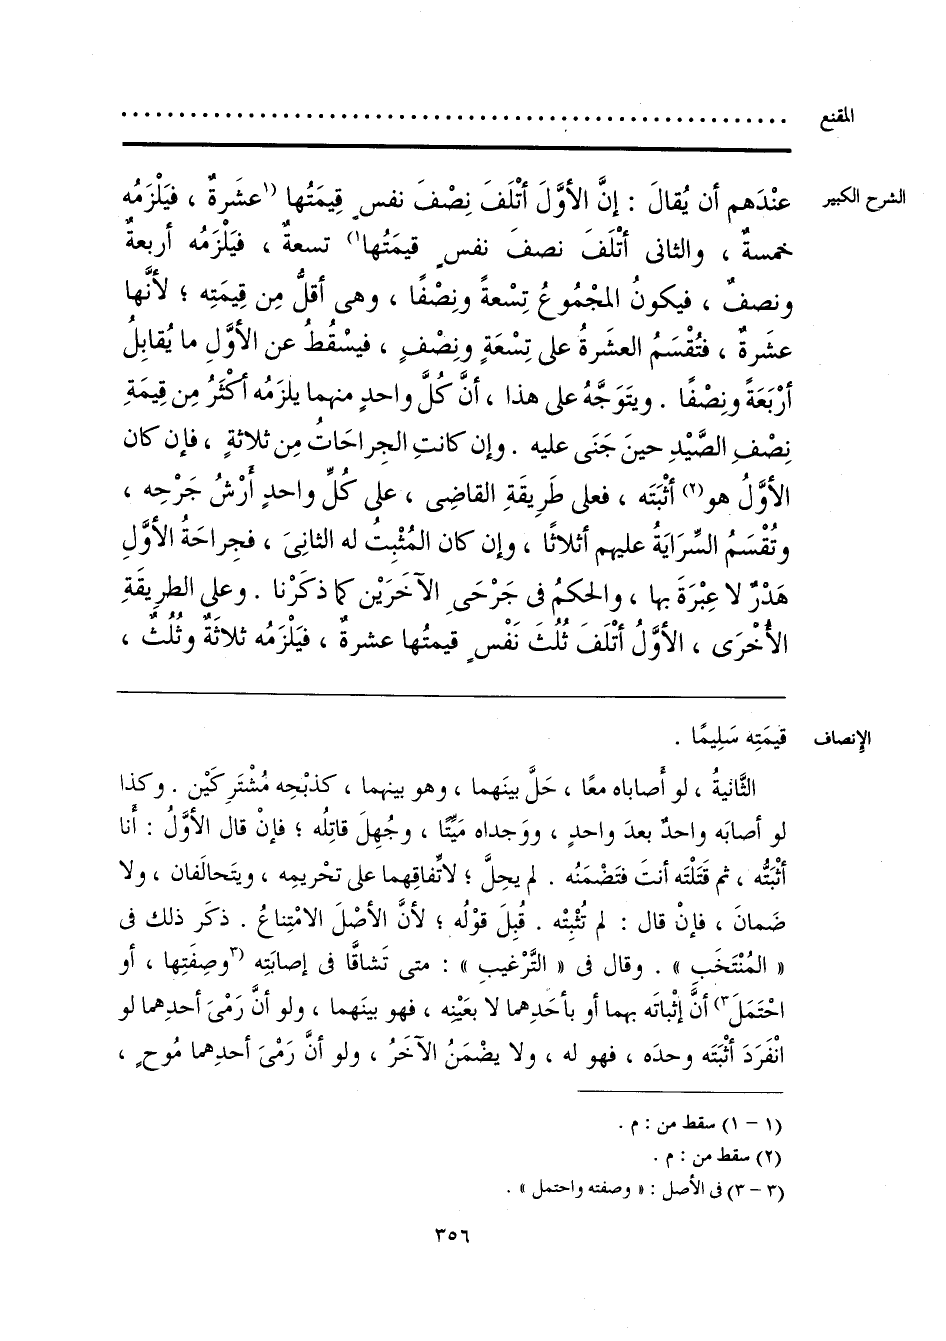 المقنع ................................................
الشرح الكبير عنْدَهم أن يُقالَ : إنَّ الأوَّلَ أتْلَفَ نِصْفَ نفسٍ قِيمَتُها (١عشَرةٌ ، فيَلْزَمُه
خمسةٌ ، والثانى أتْلَفَ نصفَ نفسٍ قيمَتُها١) تسعةٌ ، فيَلْزَمُه أربعةٌ
ونصفٌ ، فيكونُ المجْموعُ تِسْعةً ونِصْفًا ، وهى أقلُّ مِن قِيمَتِه ؛ لأنَّها
عشَرةٌ ، فتُقْسَمُ العشَرةُ على تِسْعَةٍ ونِصْفٍ ، فيسْقُطُ عن الأوَّلِ ما يُقابِلُ
أرْبَعَةً ونِصْفًا . ويتَوَجَّهُ على هذا ، أنَّ كُلَّ واحدٍ منهما يلزَمُه أكْثَرُ مِن قِيمَةِ
نِصْفِ الصَّيْدِ حينَ جَنَى عليه . وإن كانتِ الجِراحَاتُ مِن ثلاثةٍ ، فإن كان
الأوَّلُ هو(٢) أثْبَتَه ، فعلى طَرِيقَةِ القاضِى ، على كُلِّ واحدٍ أَرْشُ جَرْحِه ،
وتُقْسَمُ السِّرَايَةُ عليهم أثلاثًا ، وإن كان المُثْبِتُ له الثانِىَ ، فجِراحَةُ الأوَّلِ
هَدْرٌ لا عِبْرَةَ بها ، والحكمُ فى جَرْحَىِ الآخَرَيْن كما ذكَرْنا . وعلى الطرِيقَةِ
الأُخْرَى ، الأوَّلُ أتْلَفَ ثُلُثَ نَفْسٍ قيمتُها عشرةٌ ، فيَلْزَمُه ثلاثَةٌ وثُلُثٌ ،
الإنصاف قيمَتِه سَلِيمًا .
الثَّانيةُ ، لو أصاباه معًا ، حَلَّ بينَهما ، وهو بينهما ، كذبْحِه مُشْتَرِكَيْن . وكذا
لو أصابَه واحدٌ بعدَ واحدٍ ، ووَجداه مَيِّتًا ، وجُهِلَ قاتِلُه ؛ فإنْ قال الأوَّلُ : أَنا
أثْبَتُّه ، ثم قَتَلْتَه أنتَ فتَضْمَنُه . لم يحِلَّ ؛ لاتِّفاقِهما على تحْريمِه ، ويتَحالَفان ، ولا
ضَمانَ ، فإنْ قال : لم تُثْبِتْه . قُبِلَ قوْلُه ؛ لأنَّ الأصْلَ الامْتِناعُ . ذكَر ذلك فى
« المُنْتَخَبِ » . وقال فى « التَّرْغيبِ » : متى تَشاقَّا فى إصابَتِه (٣وصِفَتِها ، أو
احْتَمَلَ٣) أنَّ إثْباتَه بهما أو بأحَدِهما لا بعَيْنِه ، فهو بينَهما ، ولو أنَّ رَمْىَ أحدِهما لو
انْفَرَدَ أثْبَتَه وحدَه ، فهو له ، ولا يضْمَنُ الآخَرُ ، ولو أنَّ رَمْىَ أحدِهما مُوحٍ ،
(١ - ١) سقط من : م .
(٢) سقط من : م .
(٣ - ٣) فى الأصل : « وصفته واحتمل » .
٣٥٦